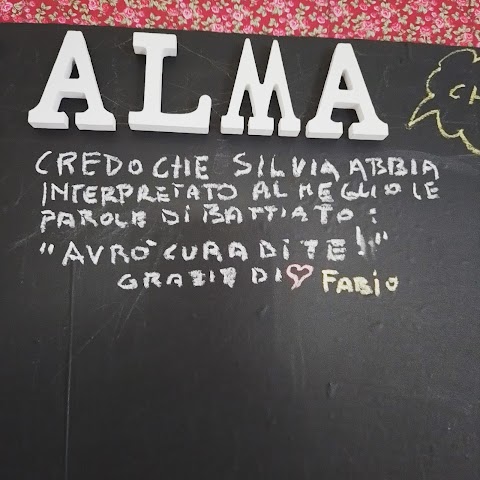 ALMA
CH
CREDO CHE SILVIA ABBIA
INTERPRETATO AL MEGLIO LE
PAROLE DI BATTIATO:
"AVRO' CURA DI TE!"
GRAZIE DI ♡ FABIO